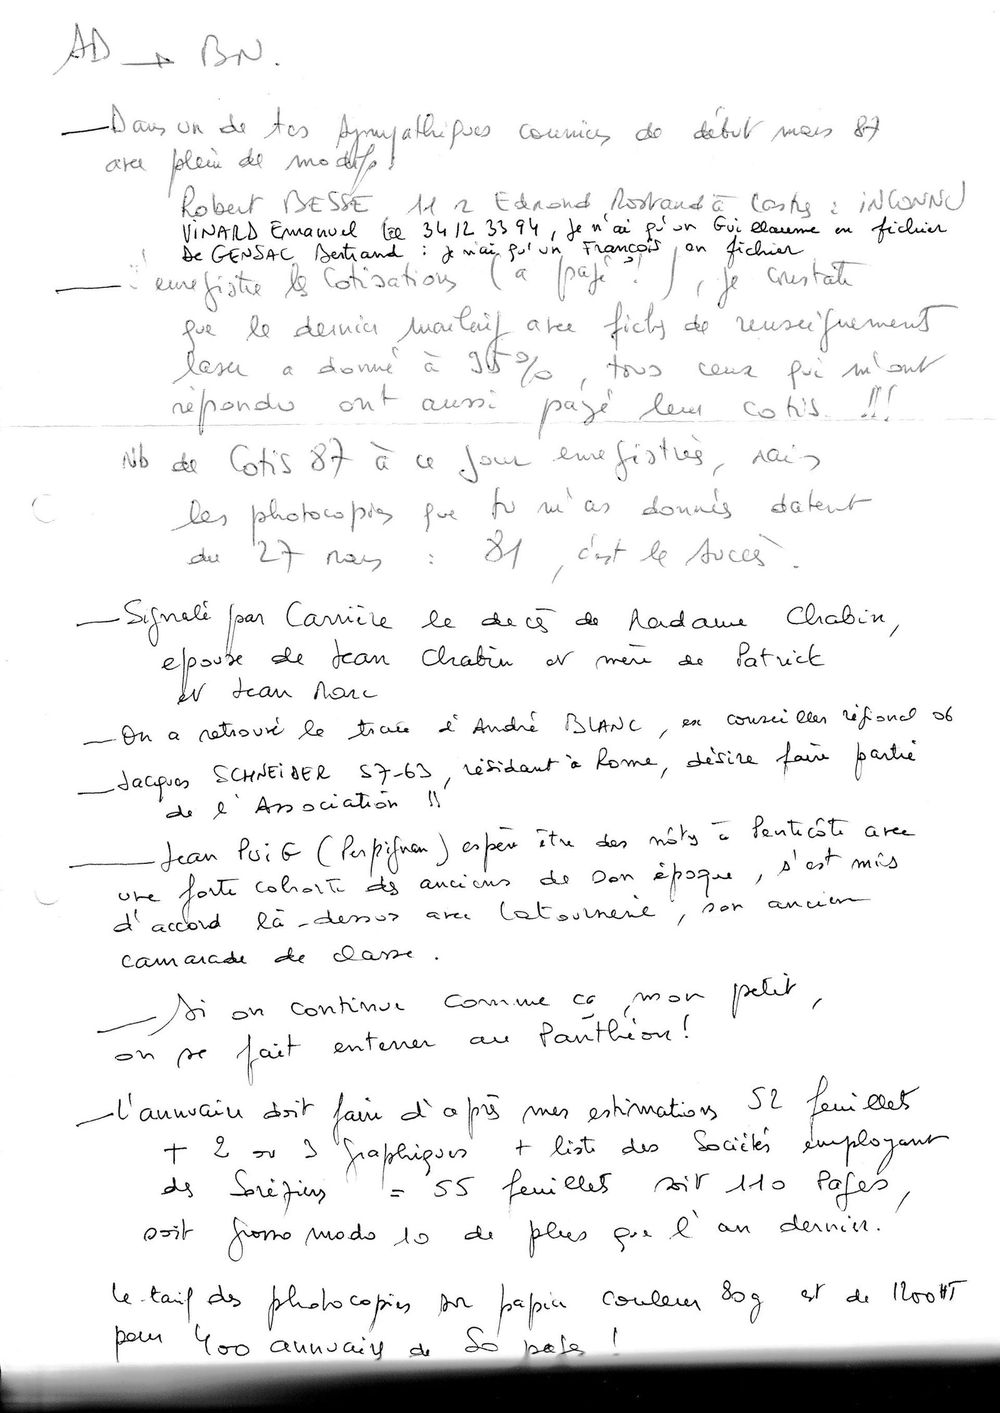 AD → BN.
— Dans un de tes sympathiques courriers de début mars 87
avec plein de modifs :
Robert BESSE 11 r Edmond Rostand à Castres : INCONNU
VINARD Emanuel tel 34 12 33 94, je n'ai qu'un Guillaume en fichier
De GENSAC Bertrand : je n'ai qu'un François en fichier
— J'enregistre les cotisations (a payé !), je constate
que le dernier mailing avec fiches de renseignements
laser a donné à 95%, tous ceux qui m'ont
répondu ont aussi payé leur cotis. !!!
Nb de Cotis 87 à ce jour enregistrés, mais
les photocopies que tu m'as donnés datent
du 27 mars : 81, c'est le succès.
— Signalé par Carrière le decès de Madame Chabin,
epouse de Jean Chabin et mère de Patrick
et Jean Marc
— On a retrouvé la trace d'André BLANC, ex conseiller régional 06
— Jacques SCHNEIDER 57-63, résidant à Rome, désire faire partie
de l'Association !!
— Jean PUIG (Perpignan) espère être des nôtres à Pentecôte avec
une forte cohorte des anciens de son époque, s'est mis
d'accord là-dessus avec Latournerie, son ancien
camarade de classe.
— Si on continue comme ça, mon petit,
on se fait enterrer au Panthéon !
— L'annuaire doit faire d'après mes estimations 52 feuillets
+ 2 ou 3 graphiques + liste des Sociétés employant
des Soréziens = 55 feuillets soit 110 Pages,
soit grosso modo 10 de plus que l'an dernier.
Le tarif des photocopies sur papier couleur 80g est de 1200 HT
pour 400 annuaires de 50 pages !